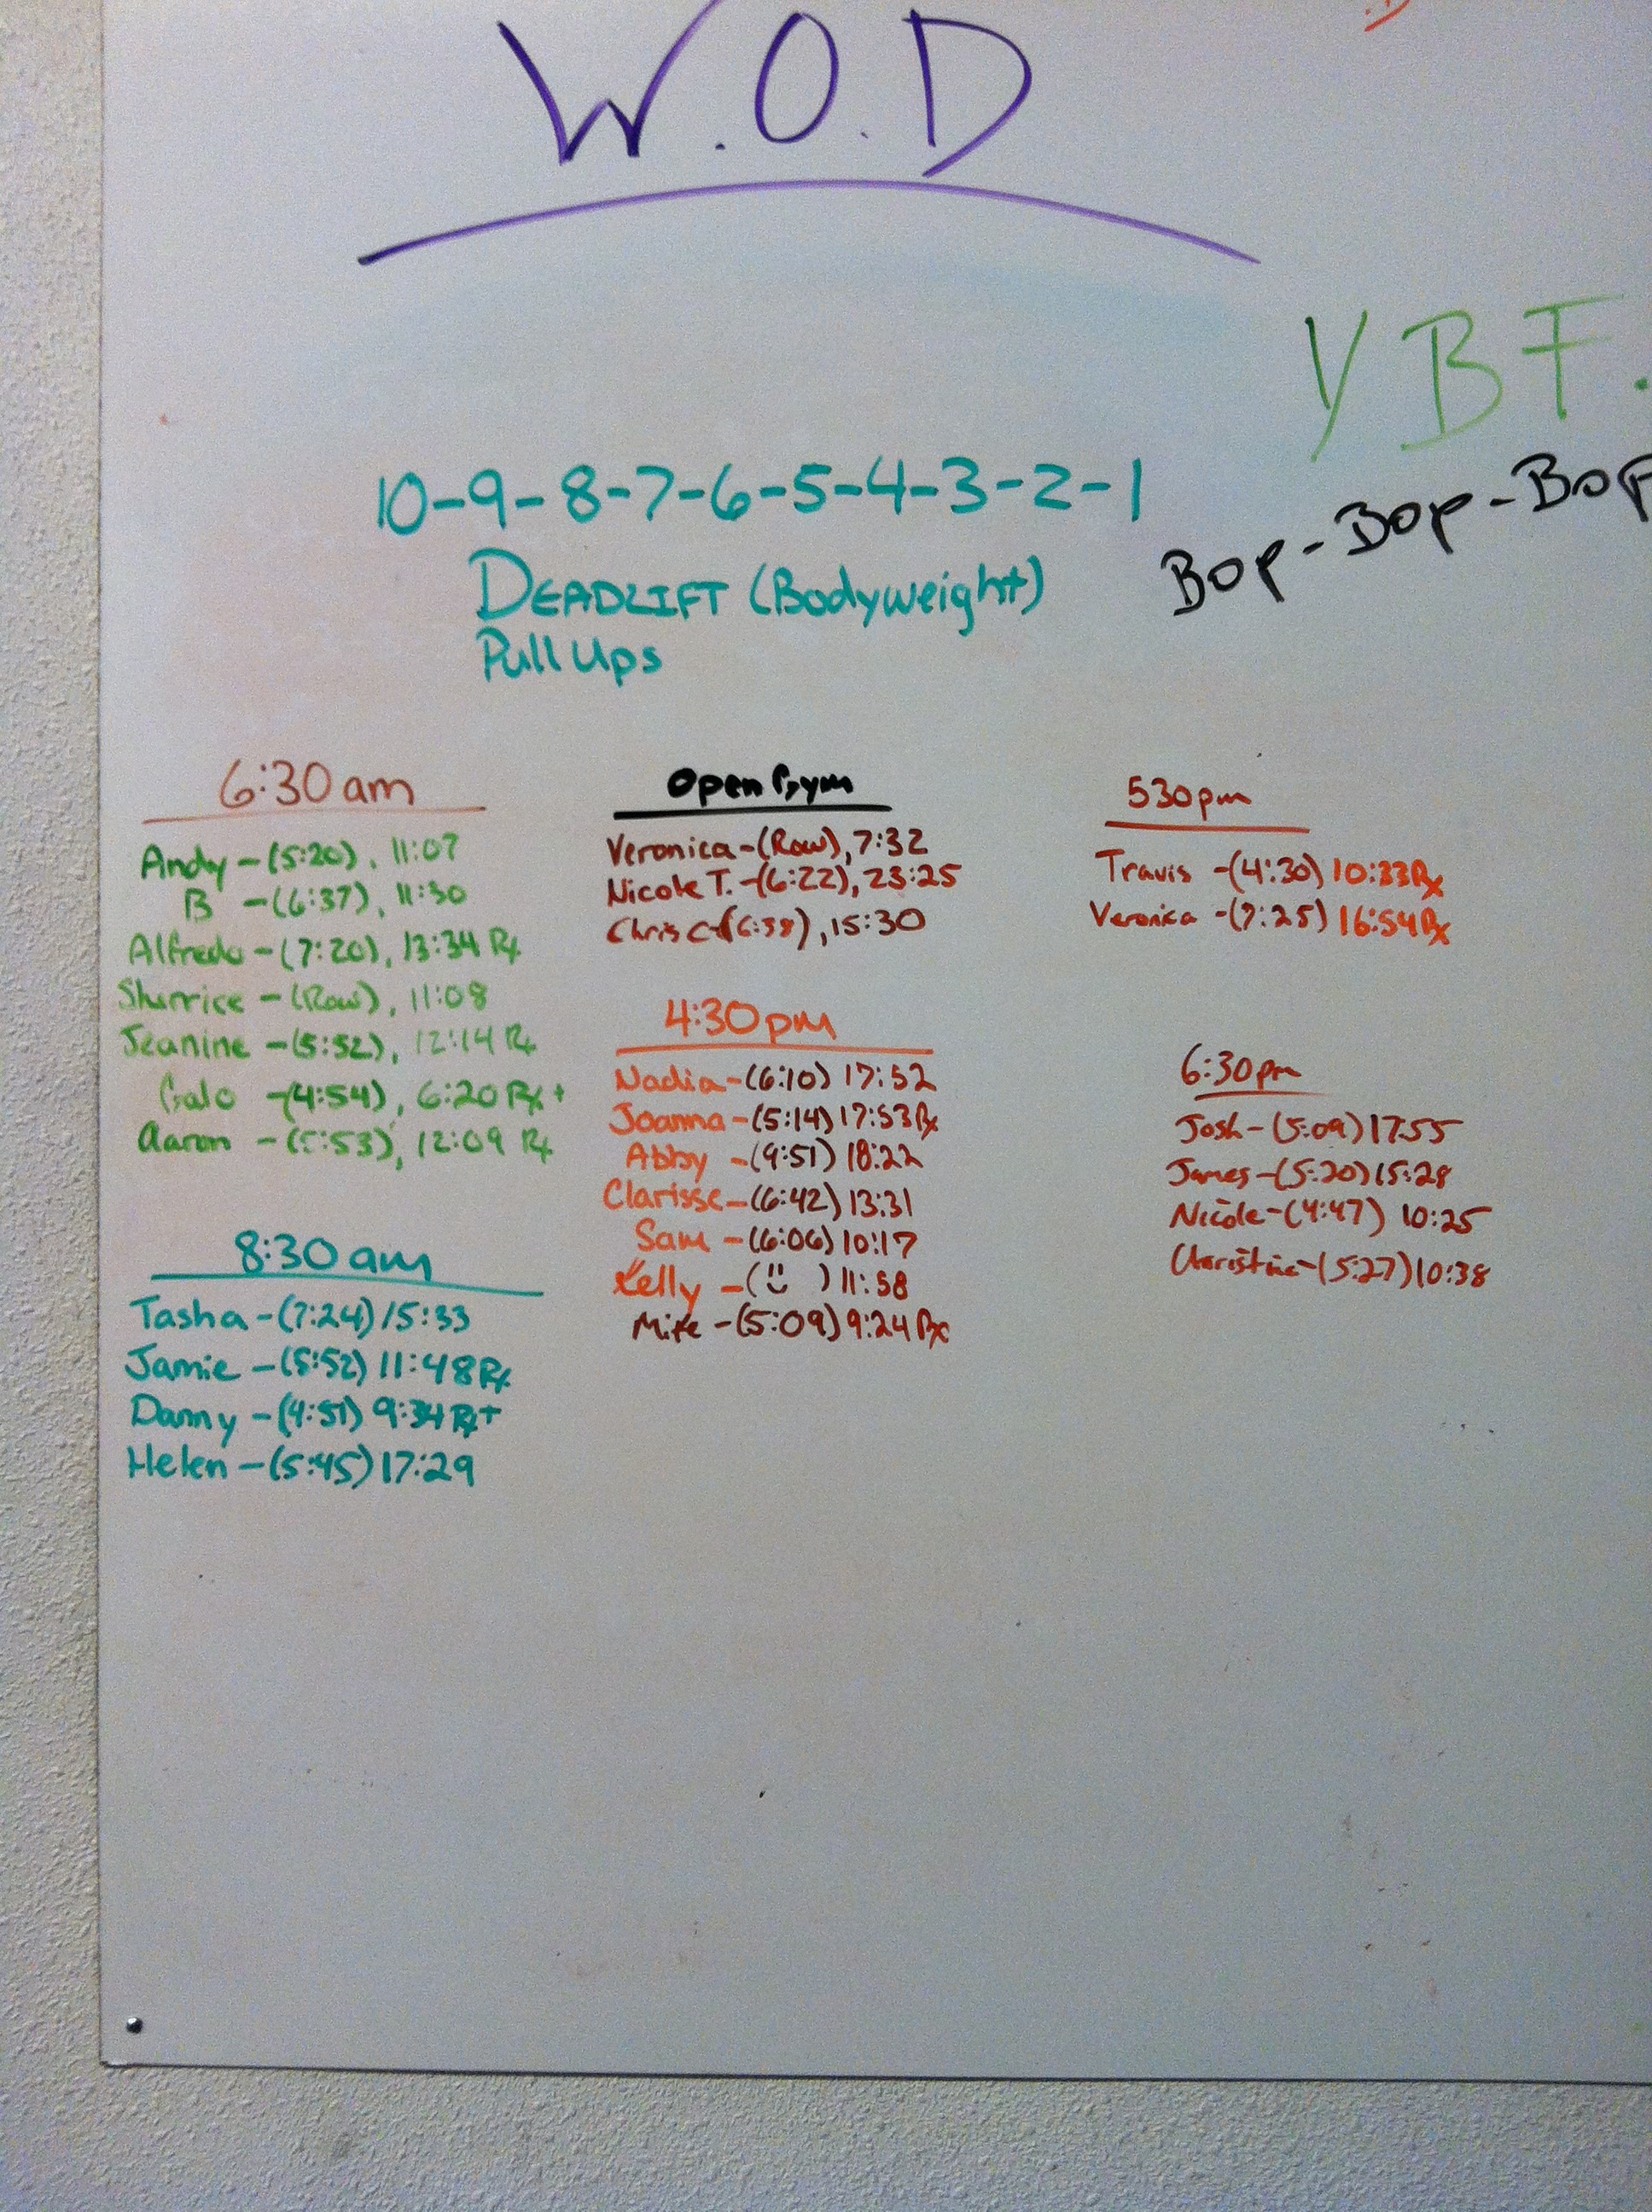 W.O.D
YBF.
Bop-Bop-Bop
10-9-8-7-6-5-4-3-2-1
DEADLIFT (Bodyweight)
Pull Ups
6:30am
Andy - (5:20), 11:07
B - (6:37), 11:30
Alfredo - (7:20), 13:34 Rx
Sherrice - (Row), 11:08
Jeanine - (5:52), 12:14 Rx
Galo - (4:54), 6:20 Rx+
Aaron - (5:53), 12:09 Rx
8:30am
Tasha - (7:24) 15:33
Jamie - (5:52) 11:48 Rx
Danny - (4:51) 9:34 Rx+
Helen - (5:45) 17:29
Open Gym
Veronica - (Row), 7:32
Nicole T. - (6:22), 23:25
Chris C - (6:38), 15:30
4:30pm
Nadia - (6:10) 17:52
Joanna - (5:14) 17:53 Rx
Abby - (9:51) 18:22
Clarisse - (6:42) 13:31
Sam - (6:06) 10:17
Kelly - ( ) 11:58
Mike - (5:09) 9:24 Rx
530pm
Travis - (4:30) 10:33 Rx
Veronica - (7:25) 16:54 Rx
6:30pm
Josh - (5:09) 17:55
James - (5:20) 15:28
Nicole - (4:47) 10:25
Christine - (5:27) 10:38